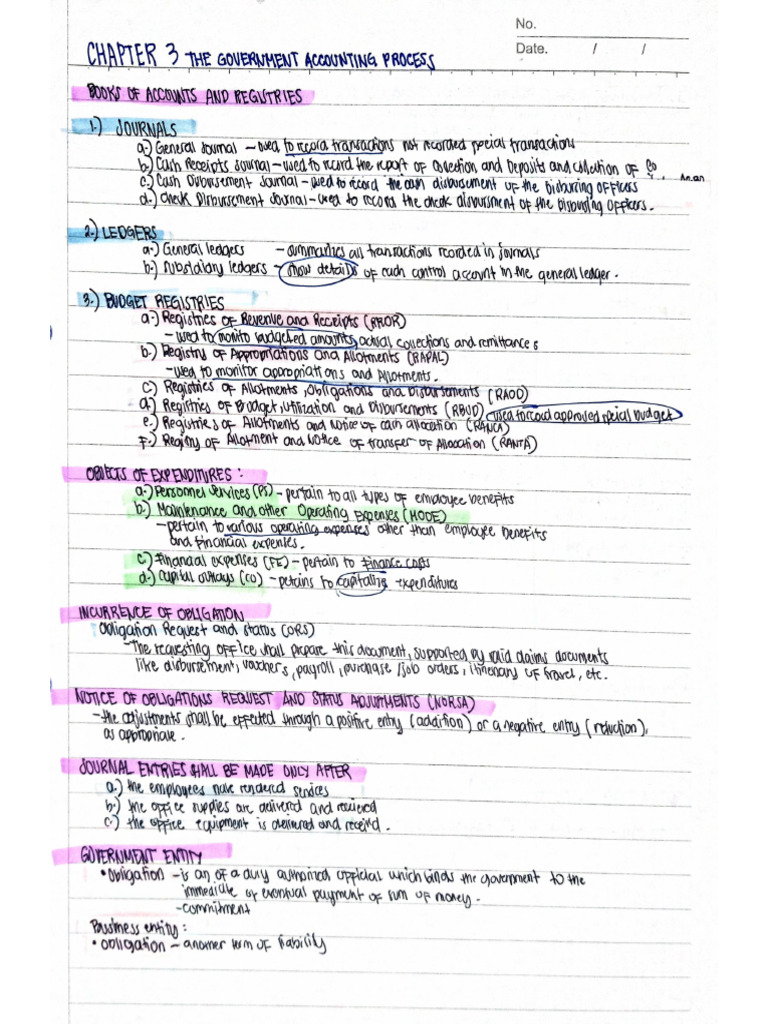 No.
Date. / /
CHAPTER 3 THE GOVERNMENT ACCOUNTING PROCESS
BOOKS OF ACCOUNTS AND REGISTRIES
1.) JOURNALS
a.) General Journal – used to record transactions not recorded special transactions
b.) Cash Receipts Journal – used to record the report of collection and Deposits and collection of
c.) Cash Disbursement Journal – used to record the cash disbursement of the Disbursing Officers
d.) Check Disbursement Journal – used to record the check disbursment of the Disbursing Officers.
2.) LEDGERS
a.) General ledgers – summarizes all transactions recorded in journals
b.) Subsidiary ledgers – show details of each control account in the general ledger.
3.) BUDGET REGISTRIES
a.) Registries of Revenue and Receipts (RROR)
– used to monito budgeted amounts, actual collections and remittances
b.) Registry of Appropriations and Allotments (RAPAL)
– used to monitor appropriations and Allotments.
c) Registries of Allotments, Obligations and Disbursements (RAOD)
d.) Registries of Budget, utilization and Disbursements (RBUD) used to record approved special budget
e.) Registries of Allotments and Notice of cash allocation (RANCA)
f.) Registry of Allotment and Notice of transfer of Allocation (RANTA)
OBJECTS OF EXPENDITURES :
a.) Personnel Services (PS) – pertain to all types of employee benefits
b.) Maintenance and other Operating Expenses (MOOE)
– pertain to various operating expenses other than employee benefits
and financial expenses.
c.) Financial expenses (FE) – pertain to finance costs
d.) Capital outlays (CO) – petains to capitalize expenditures
INCURRENCE OF OBLIGATION
Obligation Request and Status (ORS)
– The requesting office shall prepare this document, supported by valid claims documents
like disbursement, vouchers, payroll, purchase / job orders, itinerary of travel, etc.
NOTICE OF OBLIGATIONS REQUEST AND STATUS ADJUSTMENTS (NORSA)
– the adjustments shall be effected through a positive entry (addition) or a negative entry (reduction),
as appropriate.
JOURNAL ENTRIES SHALL BE MADE ONLY AFTER
a.) the employees have rendered services
b.) the office supplies are delivered and received
c.) the office equipment is delivered and receivd.
GOVERNMENT ENTITY
• Obligation – is an of a duly authorized official which binds the government to the
immediate or eventual payment of sum of money.
– commitment
Business entity :
• Obligation – another term of liability